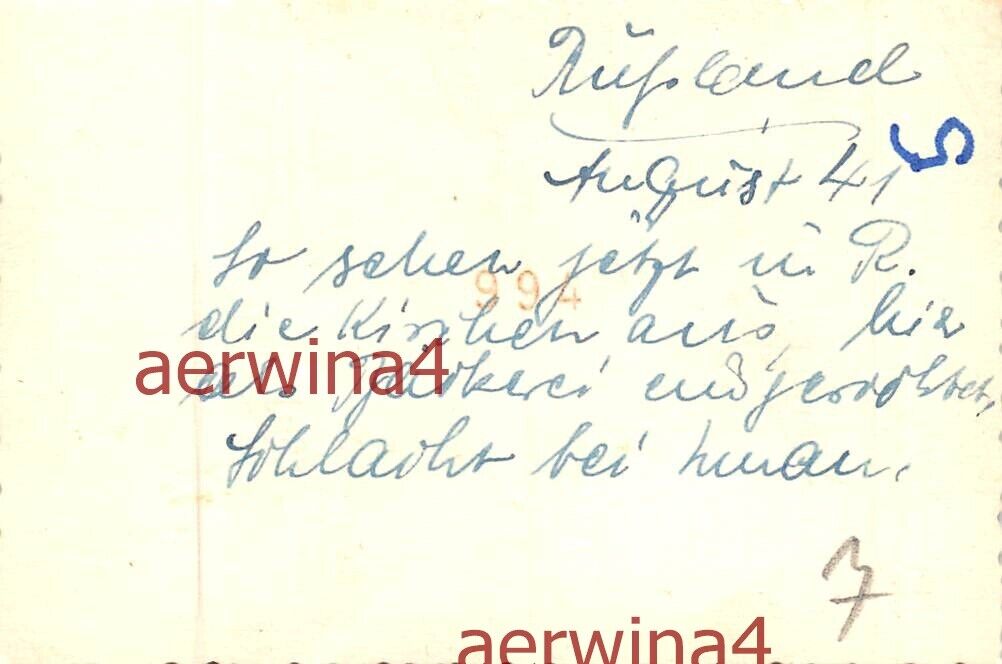 Rußland
August 41
5
So sehen jetzt in R.
994
die Kirchen aus, hier
aerwina4
als Bäckerei eingerichtet,
Schlacht bei Uman.
7
aerwina4